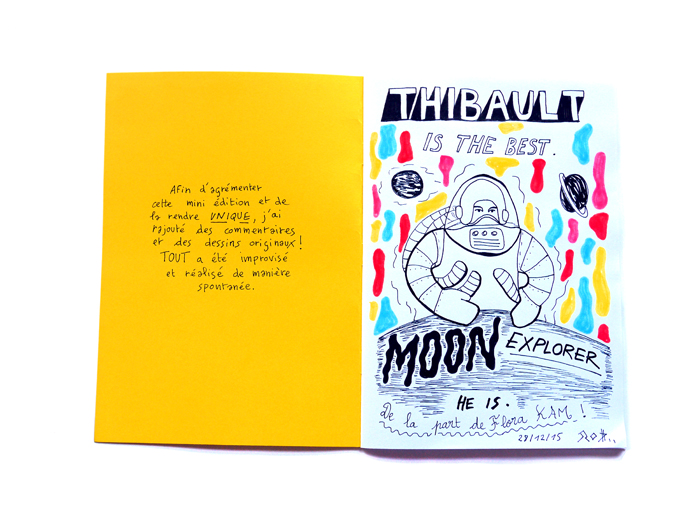 Afin d'agrémenter
cette mini édition et de
la rendre UNIQUE, j'ai
rajouté des commentaires
et des dessins originaux!
TOUT a été improvisé
et réalisé de manière
spontanée.
THIBAULT
IS THE BEST.
MOON EXPLORER
HE IS.
De la part de Flora KAM!
28/12/15